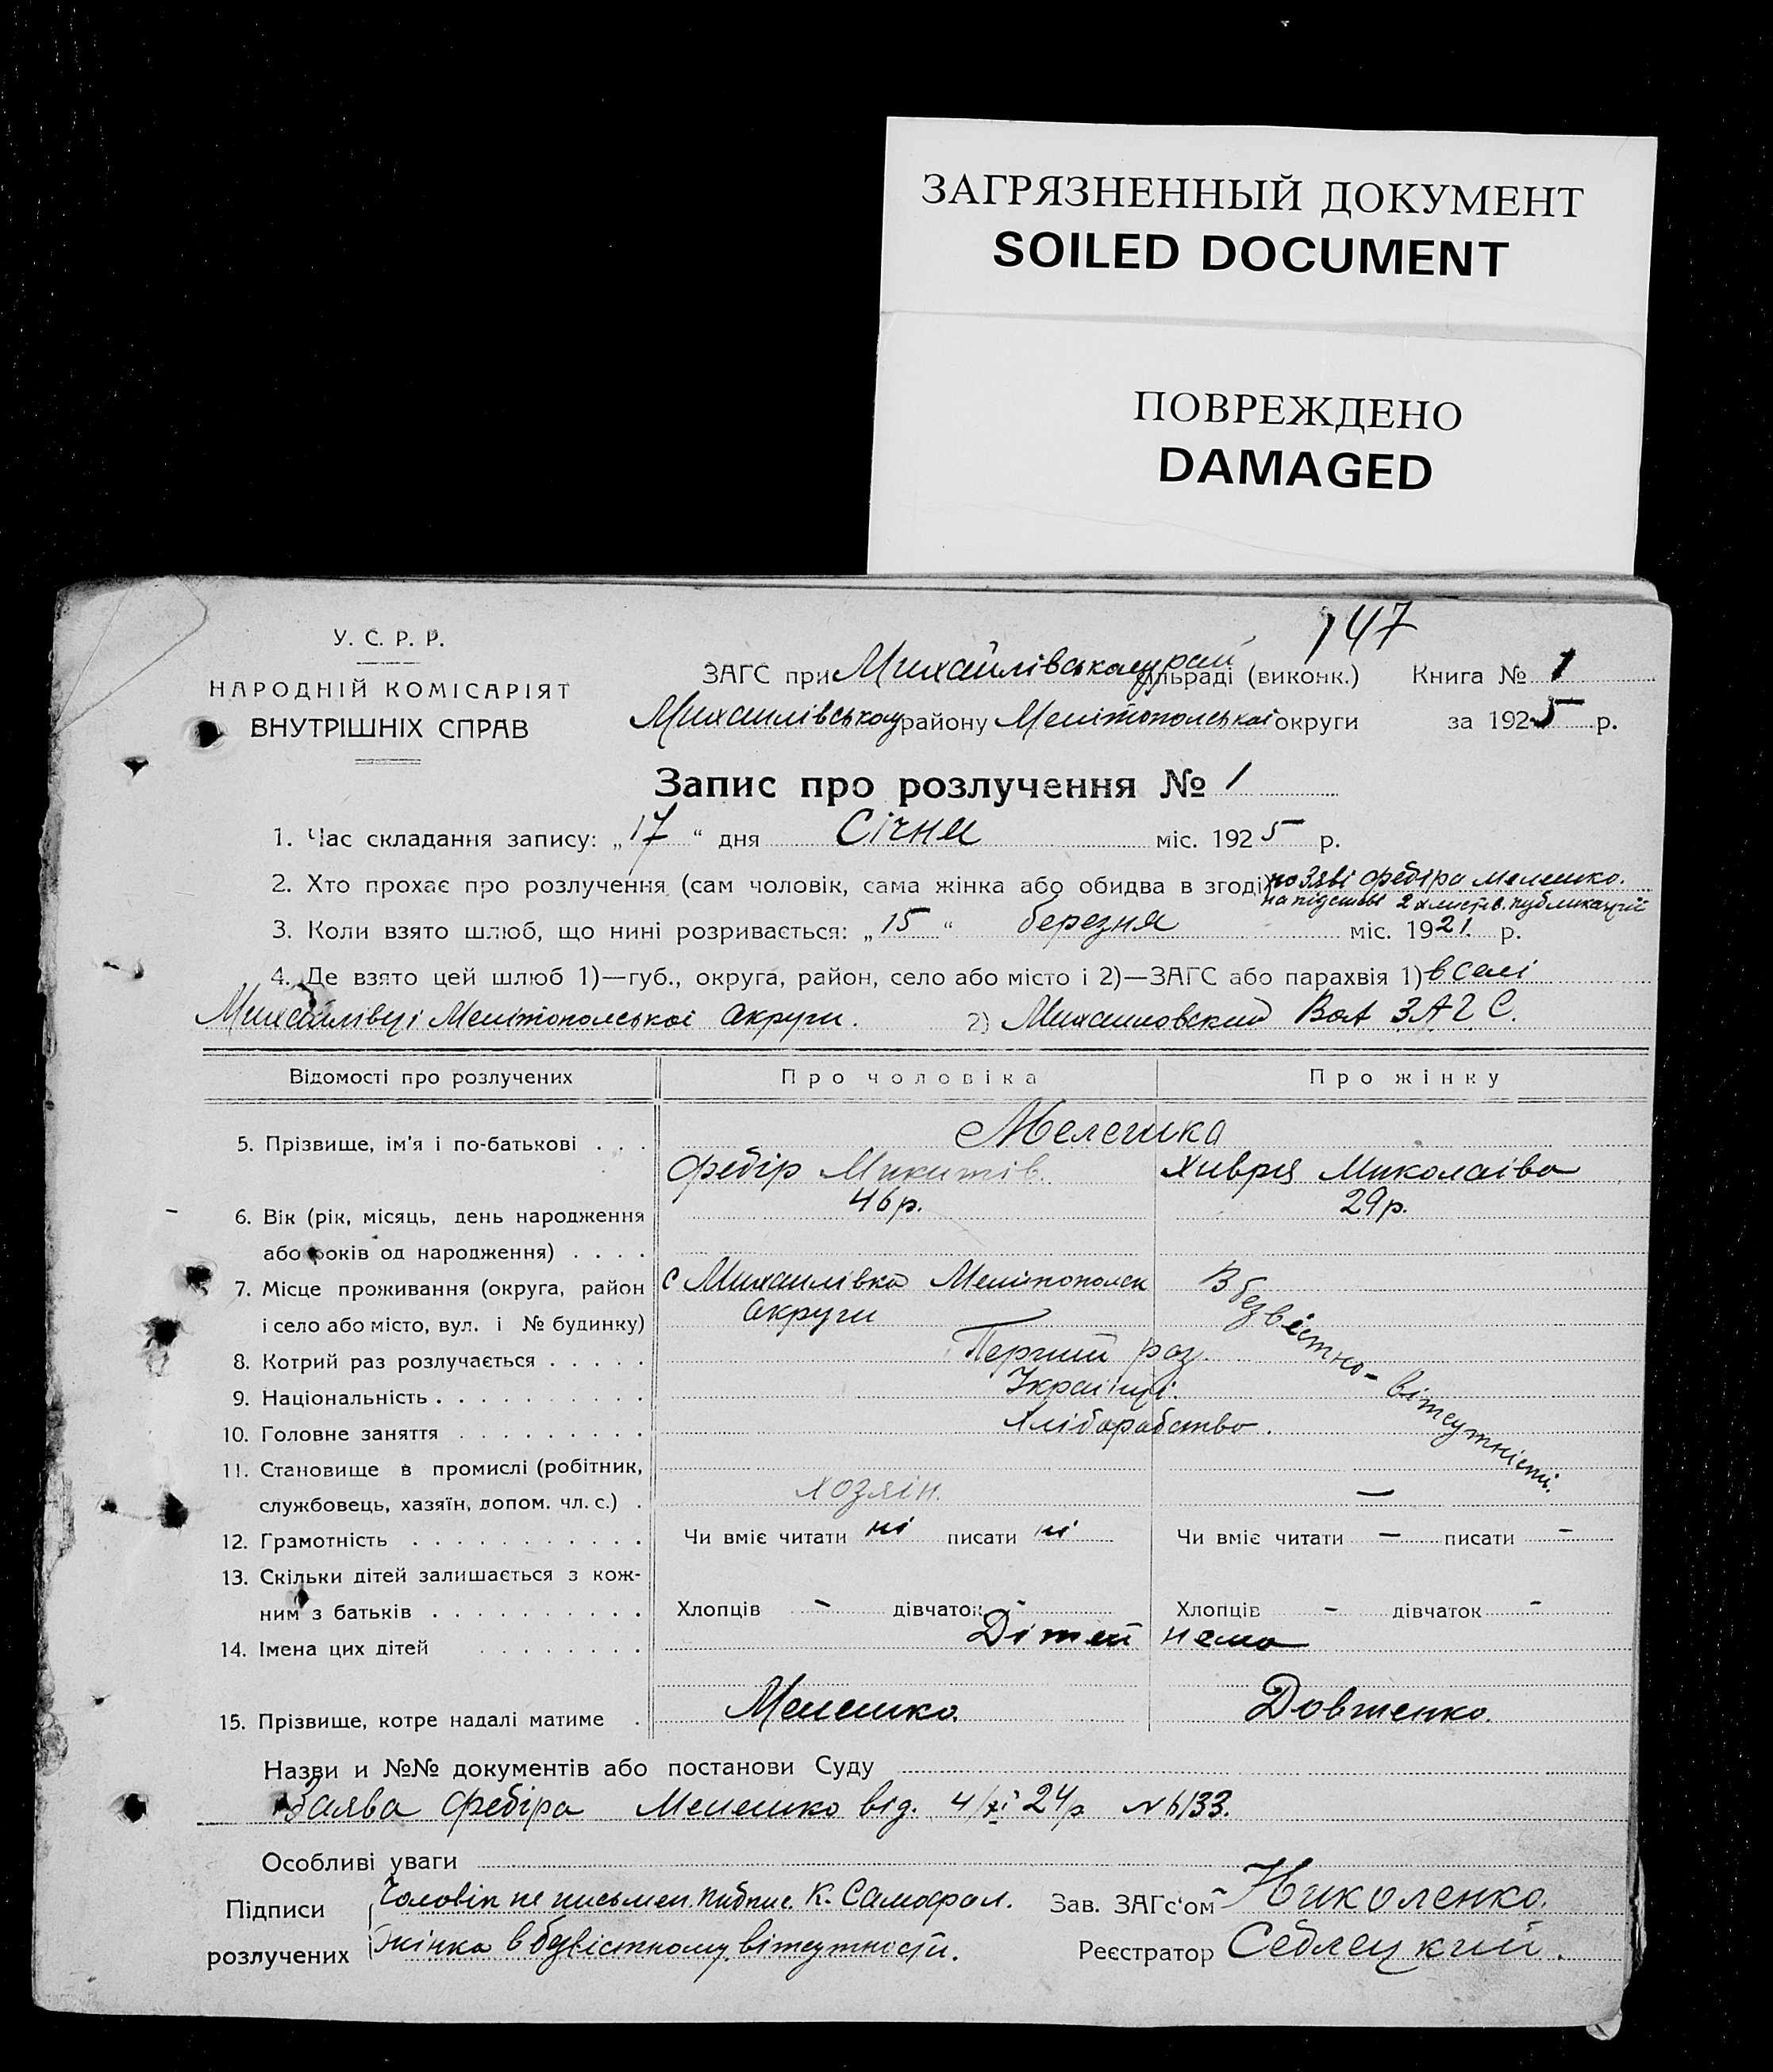 ЗАГРЯЗНЕННЫЙ ДОКУМЕНТ
SOILED DOCUMENT
ПОВРЕЖДЕНО
DAMAGED
147
У. С. Р. Р.
НАРОДНІЙ КОМІСАРІЯТ
ВНУТРІШНІХ СПРАВ
ЗАГС при Михайлівському рай сільраді (виконк.) Книга № 1
Михаилівському району Мелітопольськоі округи за 1925 р.
Запис про розлучення № 1
1. Час складання запису: „17“ дня Січня міс. 1925 р.
2. Хто прохає про розлучення (сам чоловік, сама жінка або обидва в згоді) по Заяві Федіра Мелешко.
на підставі 2х листів. публикації
3. Коли взято шлюб, що нині розривається: „15“ березня міс. 1921. р.
4. Де взято цей шлюб 1)—губ., округа, район, село або місто і 2)—ЗАГС або парахвія 1) в селі
Михайлівці Мелітопольськоі Округи. 2) Михаиловский Вол ЗАГС.
Відомості про розлучених Про чоловіка Про жінку
5. Прізвище, ім'я і по-батькові . . . Мелешка
Федір Микитів. Хивря Миколаіва
6. Вік (рік, місяць, день народження 46 р. 29 р.
або років од народження) . . . .
7. Місце проживання (округа, район с Михаилівка Мелітопольск В безвістно-вітсутністі.
і село або місто, вул. і № будинку) Округи
8. Котрий раз розлучається . . . . . Перший раз.
9. Національність . . . . . . . . . . Украінці.
10. Головне заняття . . . . . . . . . Хлібарабство.
11. Становище в промислі (робітник,
службовець, хазяїн, допом. чл. с.) . хозяін. —
12. Грамотність . . . . . . . . . . . Чи вміє читати ні писати ні Чи вміє читати — писати —
13. Скільки дітей залишається з кож-
ним з батьків . . . . . . . . . . Хлопців – дівчаток – Хлопців – дівчаток –
14. Імена цих дітей . . . . . . . . Дітей нема
15. Прізвище, котре надалі матиме . Мелешко. Довженко.
Назви и №№ документів або постанови Суду
Заява Федіра Мелешко від. 4/XI 24 р № 6133.
Особливі уваги
Підписи Чоловік не письмен. К. Самофал. Зав. ЗАГс'ом Николенко.
розлучених Жінка в безвістному вітсутности. Реєстратор Седлецкий.